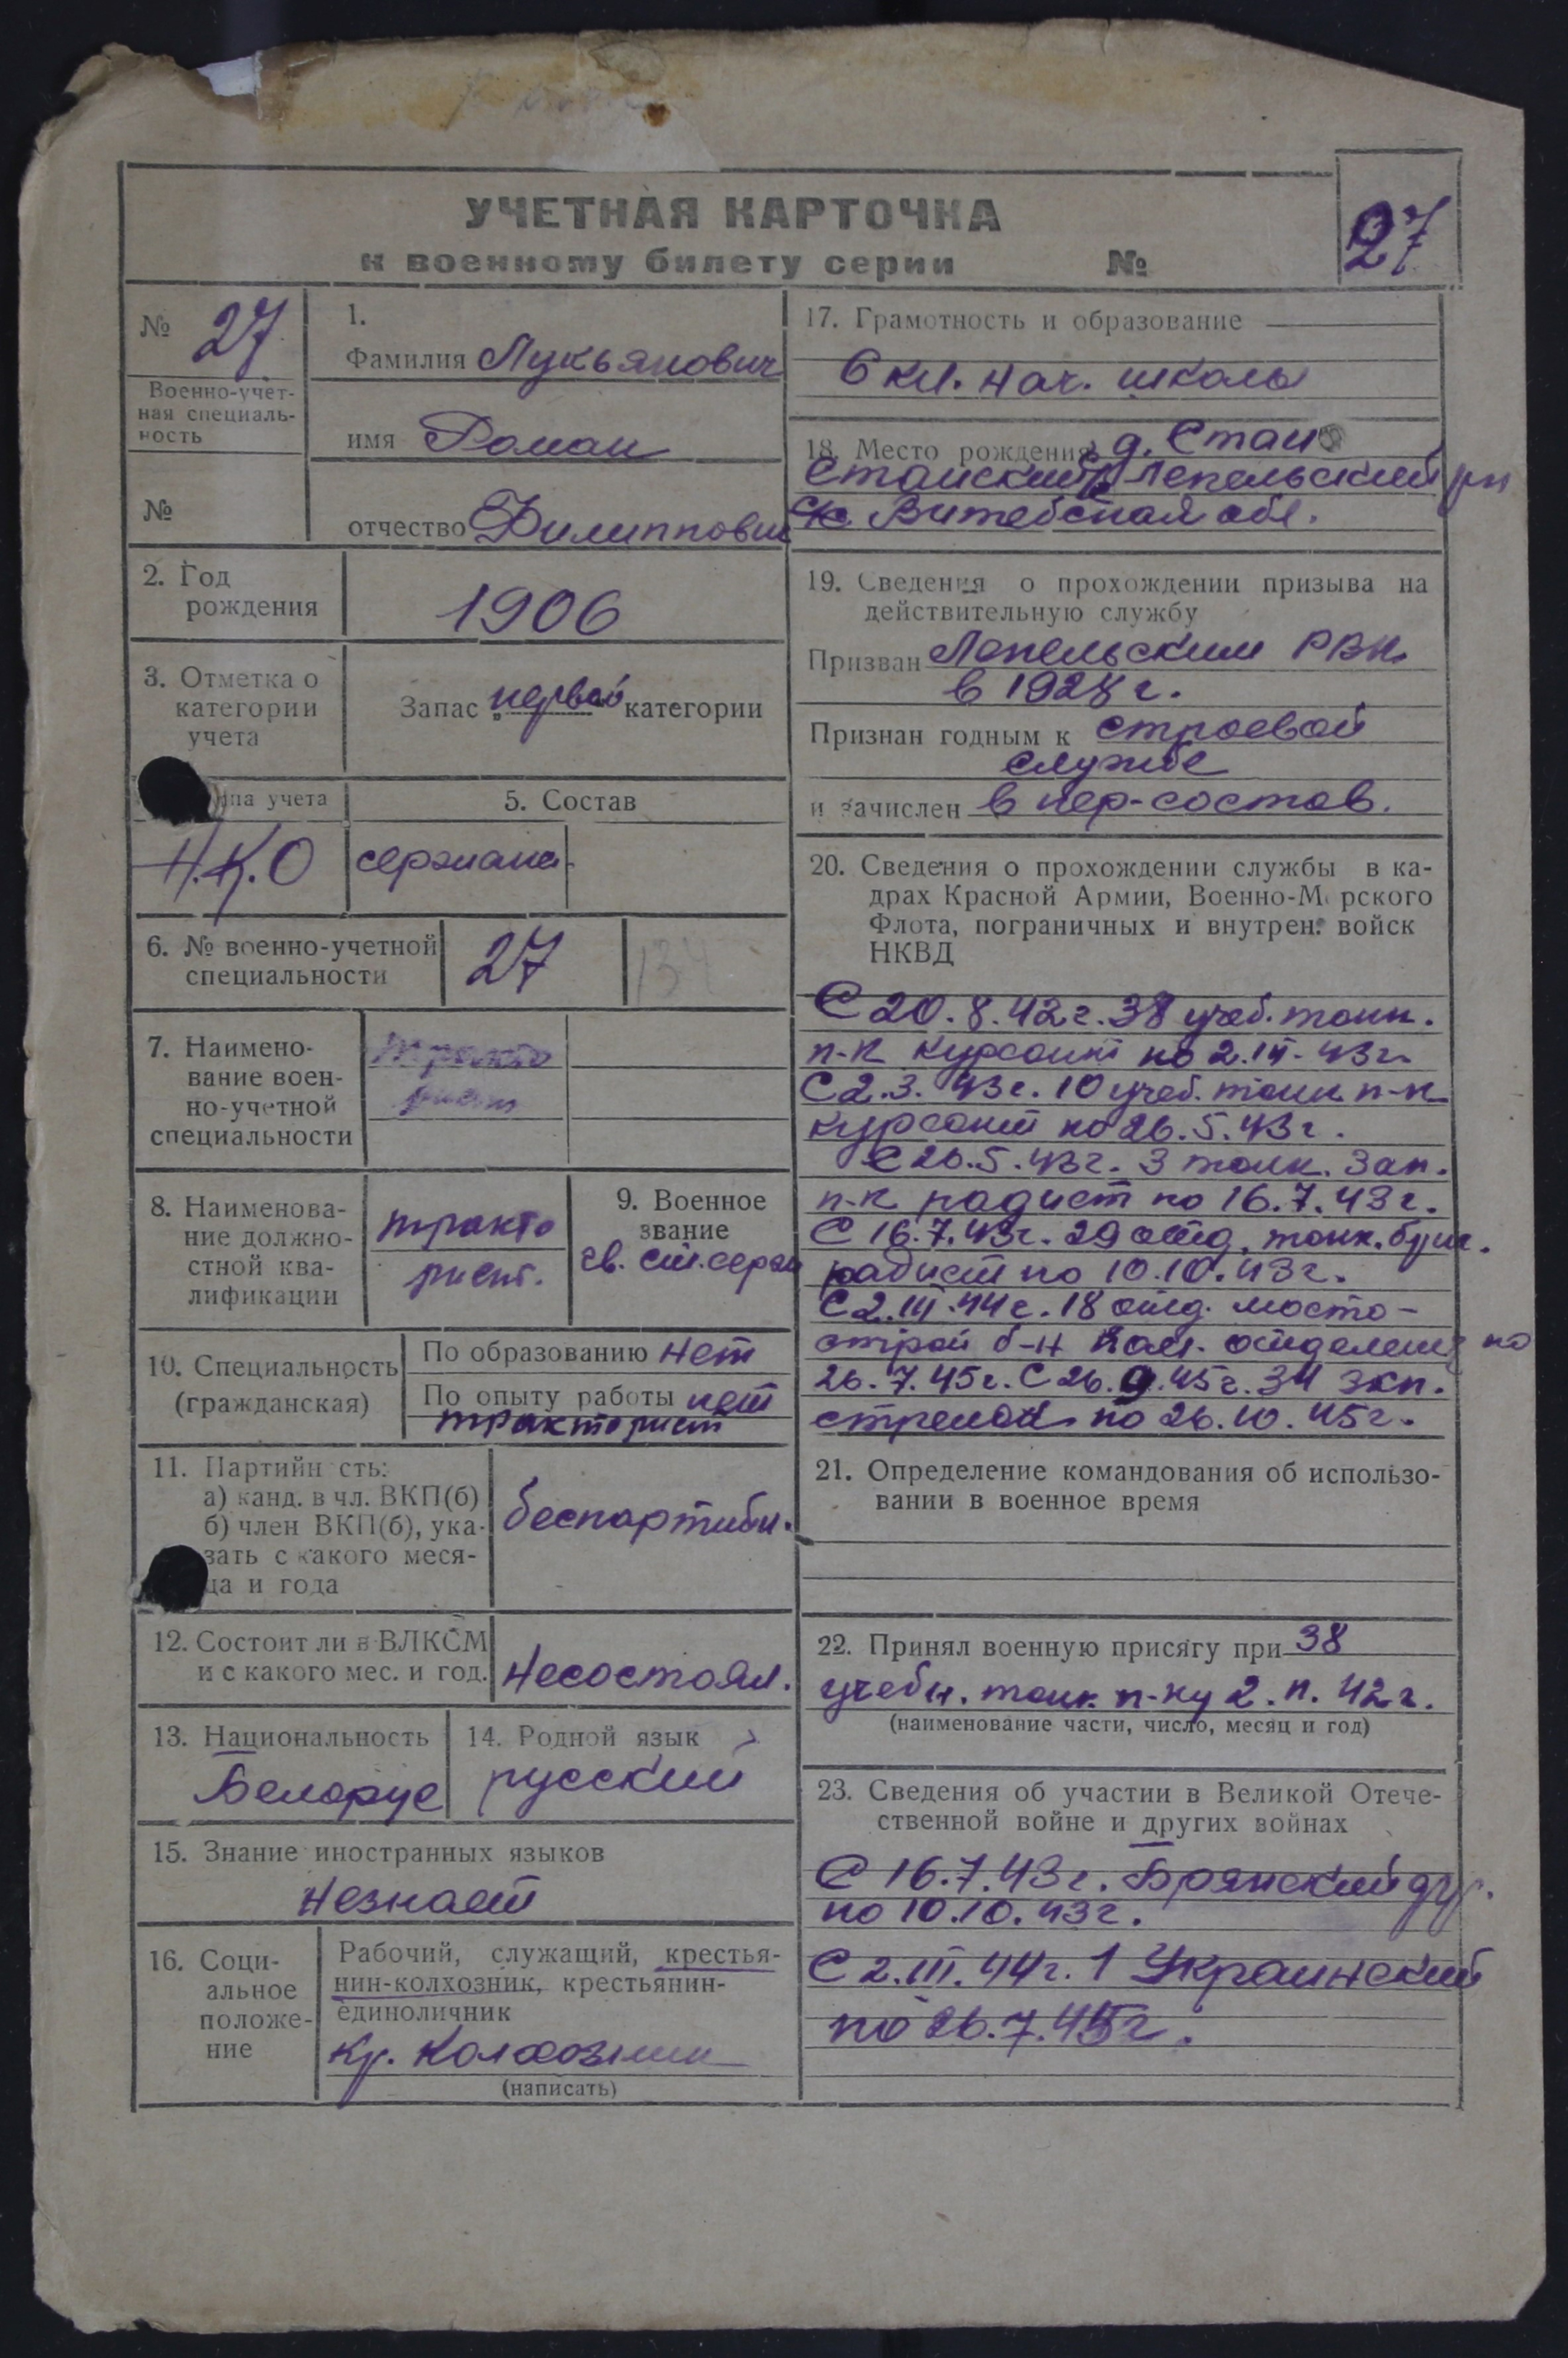 УЧЕТНАЯ КАРТОЧКА
к военному билету серии №
27
№ 27
Военно-учет-
ная специаль-
ность
№
1.
Фамилия Лукьянович
имя Роман
отчество Филиппович
2. Год
рождения
1906
3. Отметка о
категории
учета
Запас „первой“ категории
па учета
Н.К.О
5. Состав
сержанск.
6. № военно-учетной
специальности
27
134
7. Наимено-
вание воен-
но-учетной
специальности
тракто
рист
8. Наименова-
ние должно-
стной ква-
лификации
тракто
рист.
9. Военное
звание
гв. ст. серж
10. Специальность
(гражданская)
По образованию нет
По опыту работы нет
тракторист
11. Партийн сть:
а) канд. в чл. ВКП(б)
б) член ВКП(б), ука-
зать с какого меся-
ца и года
беспартийн.
12. Состоит ли в ВЛКСМ
и с какого мес. и год.
Несостоял.
13. Национальность
Белорус
14. Родной язык
русский
15. Знание иностранных языков
Незнает
16. Соци-
альное
положе-
ние
Рабочий, служащий, крестья-
нин-колхозник, крестьянин-
единоличник
Кр. Колхозник
(написать)
17. Грамотность и образование
6 кл. нач. школы
18. Место рождения д. Стаи
Стайский Лепельский рн
Витебская обл.
19. Сведения о прохождении призыва на
действительную службу
Призван Лепельским РВК
в 1928 г.
Признан годным к строевой
службе
и зачислен в пер-состав.
20. Сведения о прохождении службы в ка-
драх Красной Армии, Военно-М рского
Флота, пограничных и внутрен. войск
НКВД
С 20.8.42г. 38 учеб. танк.
п-к Курсант по 2.III.43г.
С 2.3.43г. 10 учеб. танк п-к
курсант по 26.5.43г.
С 26.5.43г. 3 танк. Зап.
п-к радист по 16.7.43г.
С 16.7.43г. 29 отд. танк. бриг.
радист по 10.10.43г.
С 2.III.44г. 18 отд. мосто-
строй б-н Ком. отделения по
26.7.45г. С 26.9.45г. 34 зкп.
стрелок по 26.10.45г.
21. Определение командования об использо-
вании в военное время
22. Принял военную присягу при 38
учебн. танк. п-ку 2.п.42г.
(наименование части, число, месяц и год)
23. Сведения об участии в Великой Отече-
ственной войне и других войнах
С 16.7.43г. Брянский фр.
по 10.10.43г.
С 2.III.44г. 1 Украинский
по 26.7.45г.